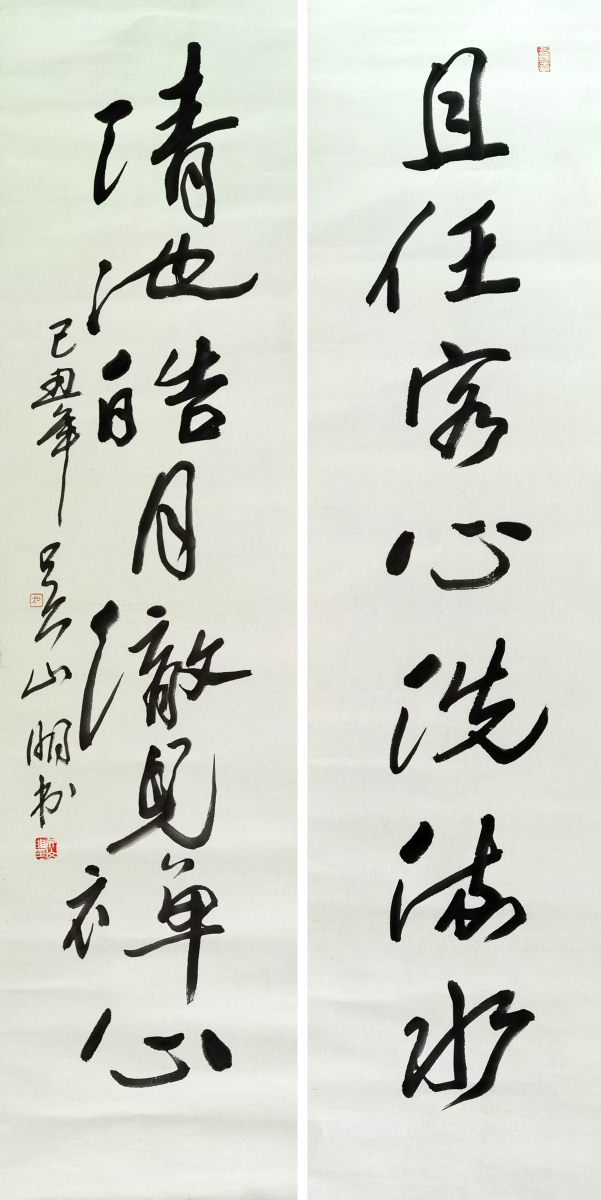 且任客心洗流水
清池皓月澈見禪心
己丑年 吳山明书